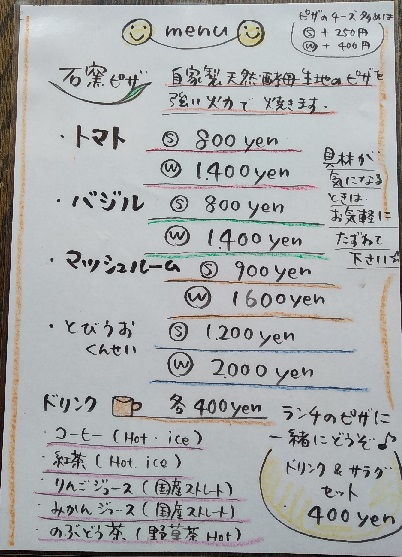 menu
ピザのチーズ多めは
Ⓢ + 250円
Ⓦ + 400円
石窯ピザ
自家製天然酵母生地のピザを
強い火力で焼きます.
・トマト Ⓢ 800yen
Ⓦ 1.400yen
・バジル Ⓢ 800yen
Ⓦ 1.400yen
・マッシュルーム Ⓢ 900yen
Ⓦ 1600yen
・とびうお
くんせい
Ⓢ 1.200yen
Ⓦ 2000yen
具材が
気になる
ときは
お気軽に
たずねて
下さい☆
ドリンク 各400yen
・コーヒー (Hot・ice)
・紅茶 (Hot. ice)
・りんごジュース (国産ストレート)
・みかんジュース (国産ストレート)
・のぶどう茶 (野草茶 Hot)
ランチのピザに
一緒にどうぞ♪
ドリンク & サラダ
セット
400yen